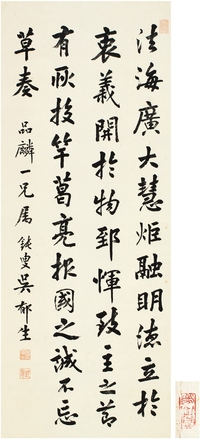 法海廣大慧炬融明德立於
衷義開於物郅惲致主之節
有耿投竿葛亮報國之誠不忘
草奏
品麟一兄屬 鈍叟吳郁生